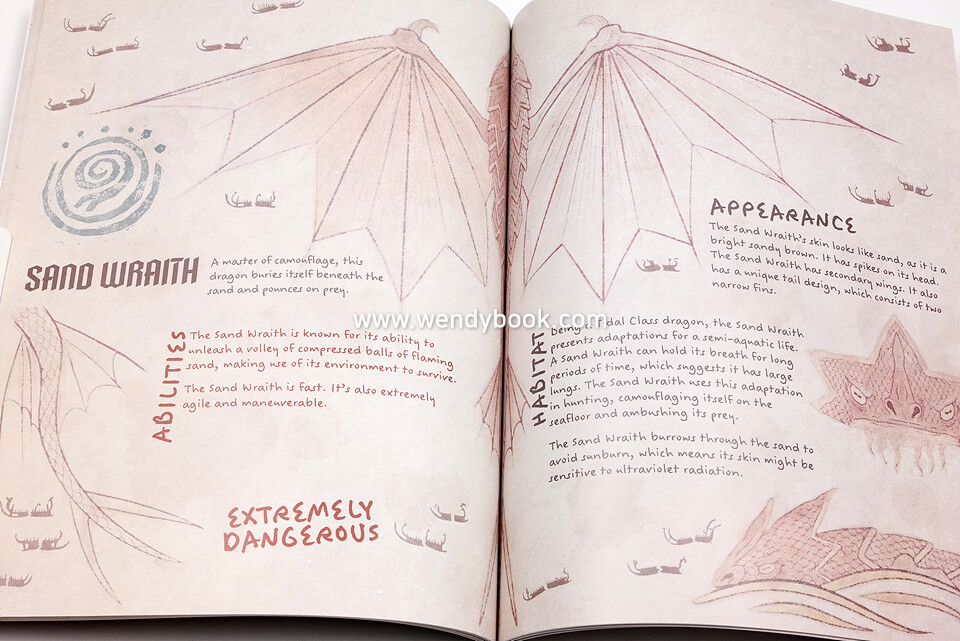 SAND WRAITH
A master of camouflage, this
dragon buries itself beneath the
sand and pounces on prey.
ABILITIES
The Sand Wraith is known for its ability to
unleash a volley of compressed balls of flaming
sand, making use of its environment to survive.
The Sand Wraith is fast. It's also extremely
agile and maneuverable.
EXTREMELY
DANGEROUS
APPEARANCE
The Sand Wraith's skin looks like sand, as it is a
bright sandy brown. It has spikes on its head.
The Sand Wraith has secondary wings. It also
has a unique tail design, which consists of two
narrow fins.
www.wendybook.com
HABITAT
Being a Tidal Class dragon, the Sand Wraith
presents adaptations for a semi-aquatic life.
A Sand Wraith can hold its breath for long
periods of time, which suggests it has large
lungs. The Sand Wraith uses this adaptation
in hunting, camouflaging itself on the
seafloor and ambushing its prey.
The Sand Wraith burrows through the sand to
avoid sunburn, which means its skin might be
sensitive to ultraviolet radiation.